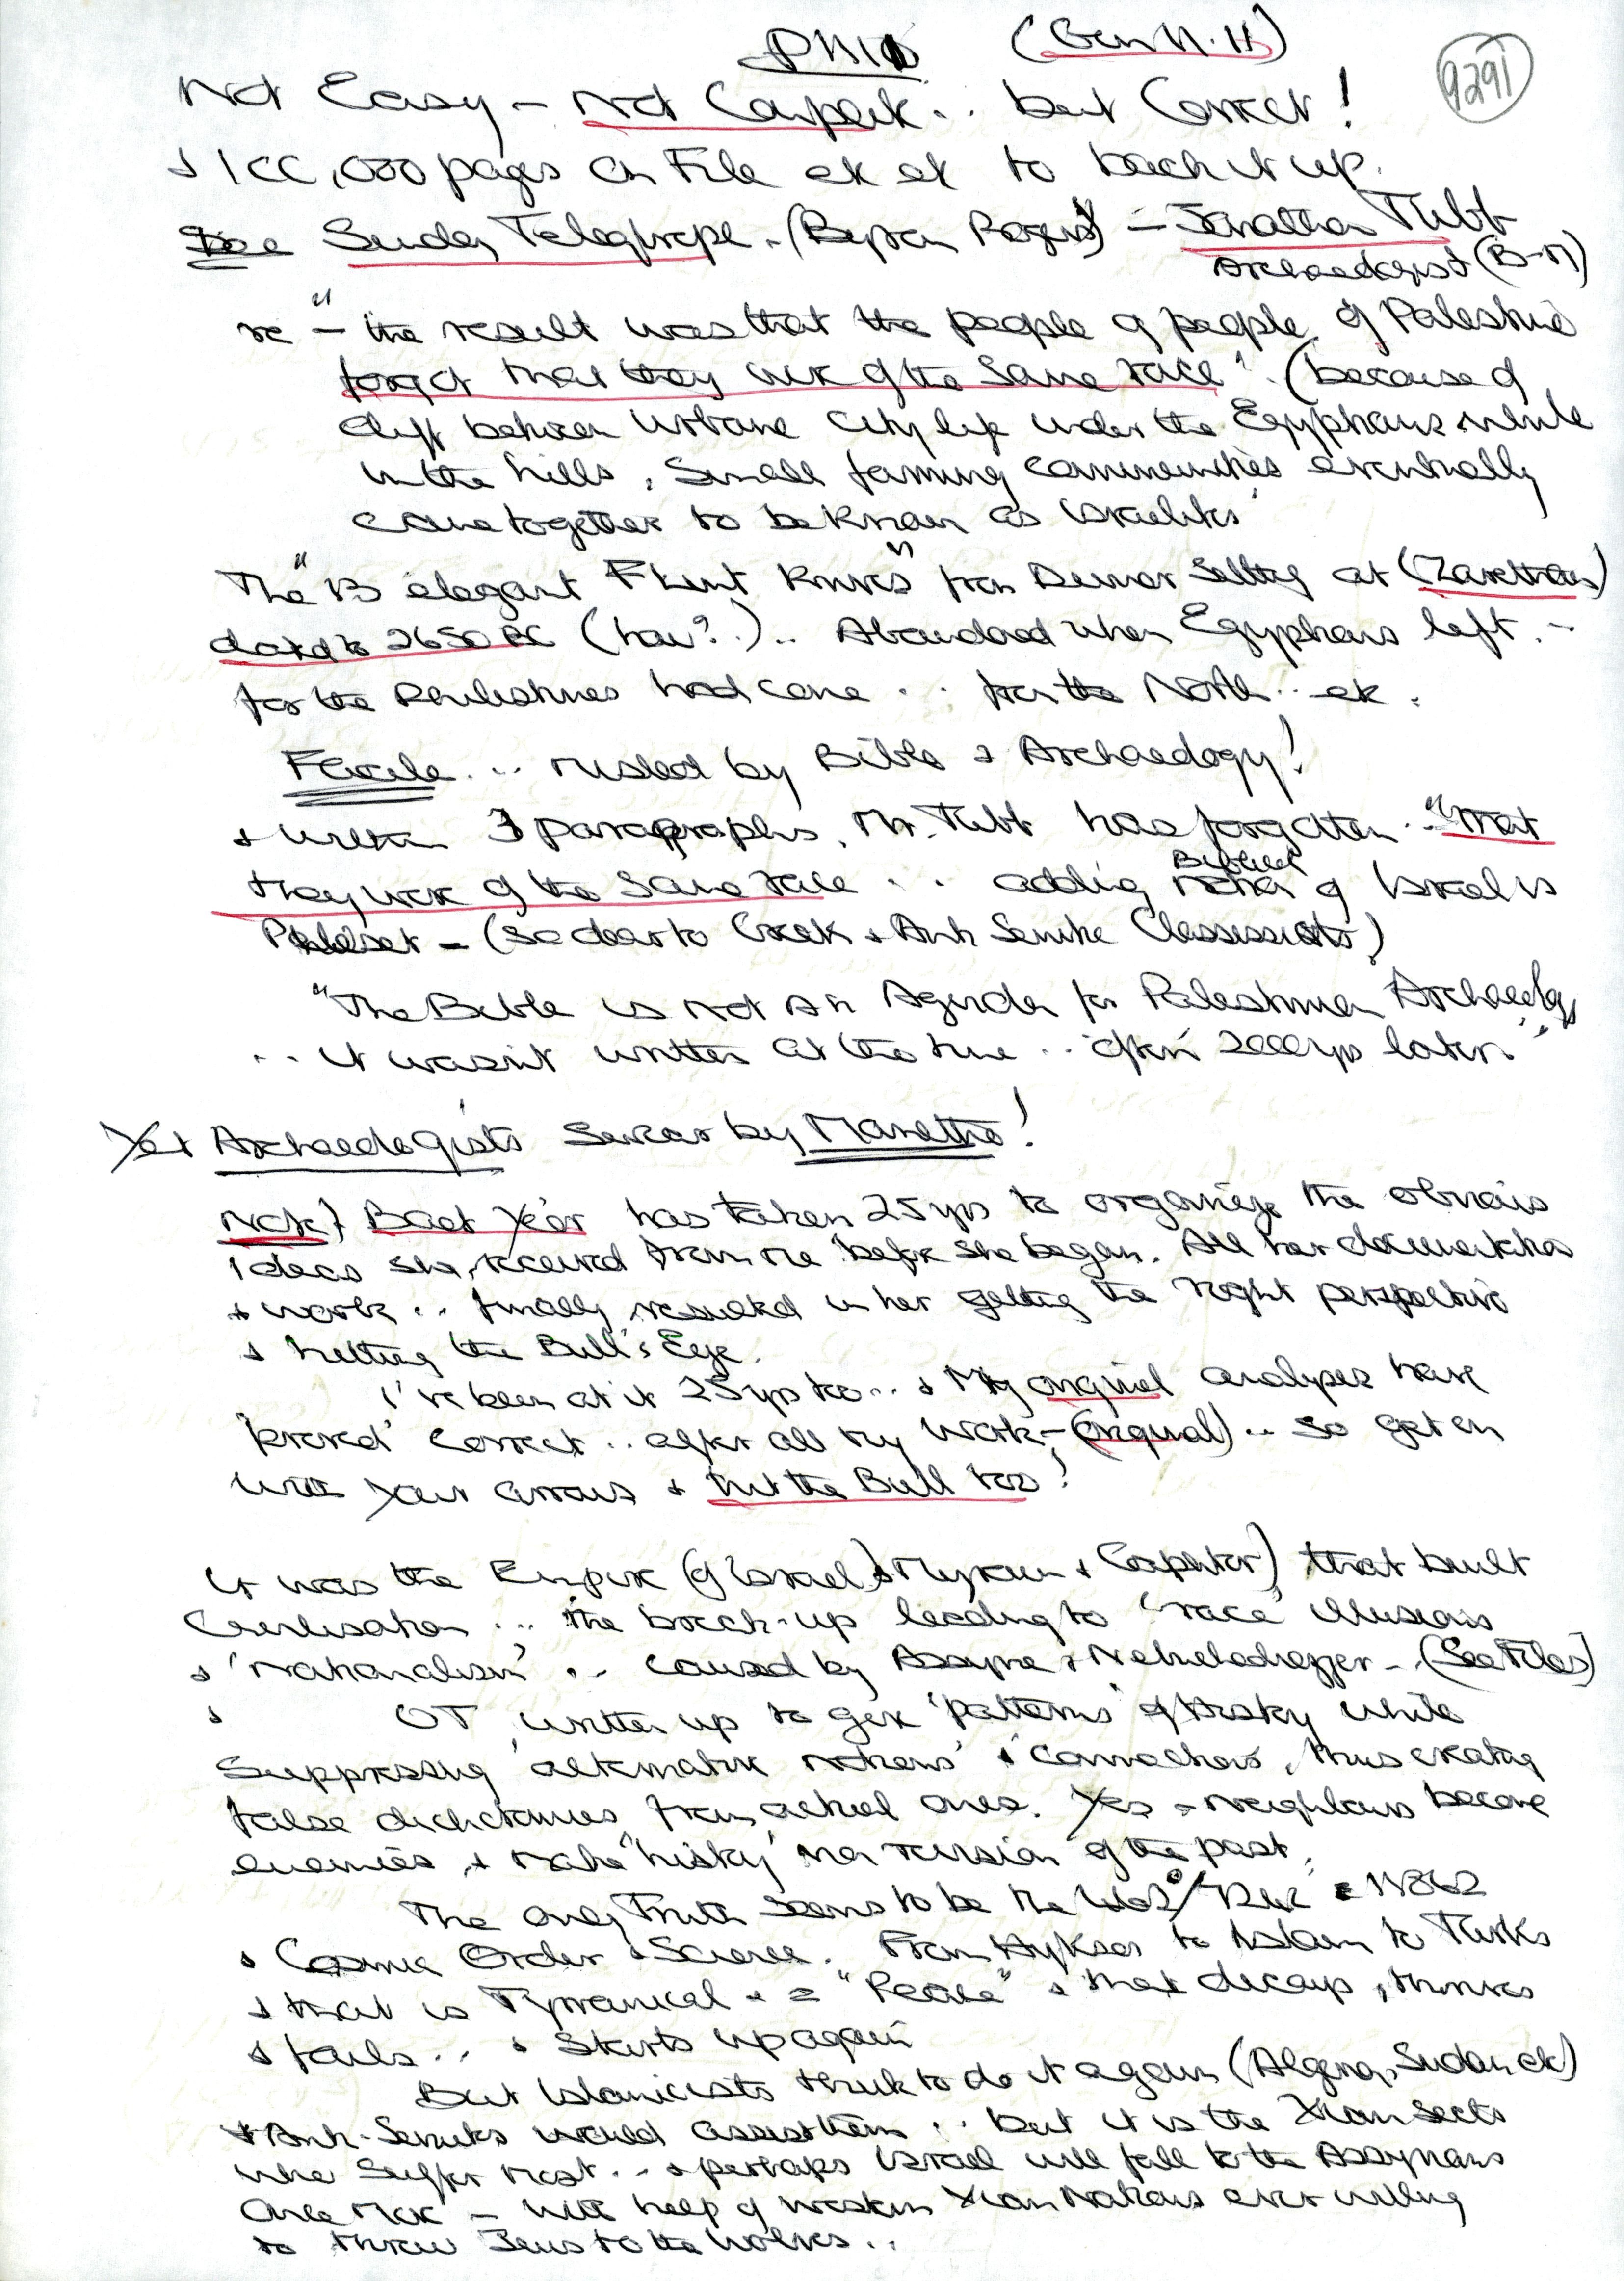 (Gen 11.11)
9291
Not Easy – Not Complete .. but Correct!
+ 100,000 pages on File etc etc to back it up.
See Sunday Telegraph – (Byron Rogers) – Jonathan Tubb
Archaeologist (B-M)
re "– the result was that the people of people of Palestine
forgot that they were of the same race". (because of
cliff between urbane city life under the Egyptians while
in the hills, small farming communities eventually
came together to be known as Israelites
The "13 elegant Flint knives" from Dinner Setting at (Zarethan)
dated to 2650 BC (how?) .. Abandoned when Egyptians left –
for the Philistines had come .. from the North .. etc.
.. rusled by Bible + Archaeology!
+ within 3 paragraphs, Mr. Tubb has forgotten .. "that
they were of the same race .. adding Biblical notion of Israel is
– (so dear to Greek + Anti Semite)
"The Bible is not an Agenda for Palestinian Archaeology
.. it wasn't written at the time .. often 2000 yrs later."
Yet Archaeologists swear by Manetho!
Note} Baet Yeor has taken 25 yrs to organise the obvious
ideas she received from me before she began. All her documentation
+ work .. finally resulted in her getting the right perspective
+ hitting the Bull's Eye.
I've been at it 25 yrs too .. + My original analyses have
'proved' correct .. after all my work – (original) .. so get on
with your arrows + hit the Bull too!
It was the Empire (of Israel) + Mycean + Caphtor) that built
Civilisation ... the break-up leading to 'race' illusions
+ 'Nationalism' .. caused by Assyria + Nebuchadnezzer – (See Files)
+ OT written up to give 'patterns' of History while
suppressing 'alternative notions' + 'connections', thus creating
false dichotomies from actual ones. Yes – neighbours become
enemies + make 'history' in a version of the past.
The only Truth seems to be the
+ Cosmic Order + Science. From Hyksos to Islam to Turks
+ that is Tyrannical + = "Peace" + that decays, thrives
+ fails .. + starts up again
But Islamicists think to do it again (Algeria, Sudan etc)
+ Anti-Semites would assist them .. but it is the Xian sects
who suffer most .. + perhaps Israel will fall to the Assyrians
Once More – with help of western Xian Nations ever willing
to throw Jews to the Wolves ..